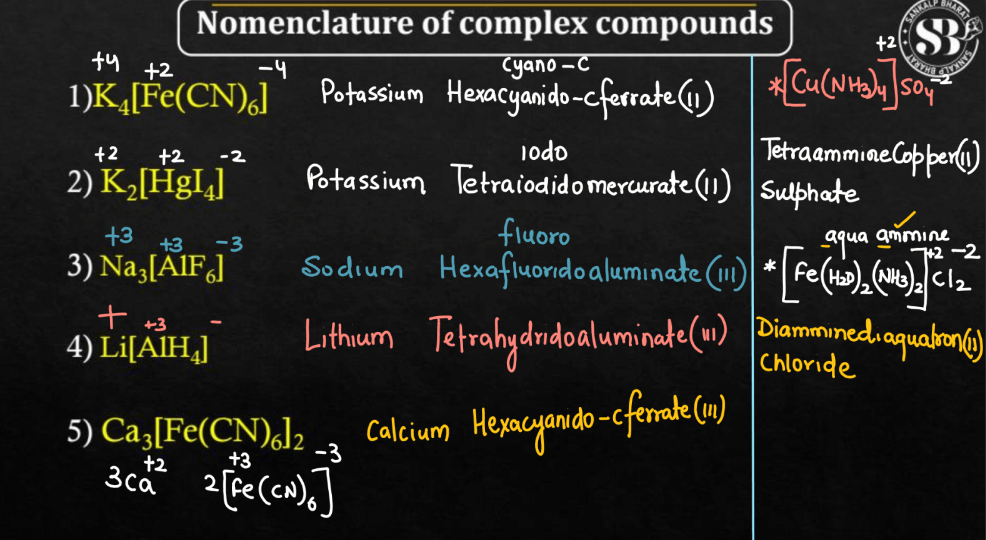 Nomenclature of complex compounds
SANKALP BHARAT
SB
+4 +2 -4 cyano-C
1)K₄[Fe(CN)₆] Potassium Hexacyanido-cferrate(II)
+2 +2 -2 iodo
2) K₂[HgI₄] Potassium Tetraiodidomercurate(II)
+3 +3 -3 fluoro
3) Na₃[AlF₆] Sodium Hexafluoridoaluminate(III)
+ +3 -
4) Li[AlH₄] Lithium Tetrahydridoaluminate(III)
5) Ca₃[Fe(CN)₆]₂ Calcium Hexacyanido-cferrate(III)
3Ca⁺² 2[Fe⁺³(CN)₆]⁻³
+2 -2
*[Cu(NH₃)₄]SO₄
TetraammineCopper(II)
Sulphate
aqua ammine
+2 -2
*[Fe(H₂O)₂(NH₃)₂]Cl₂
DiamminediaquaIron(II)
Chloride